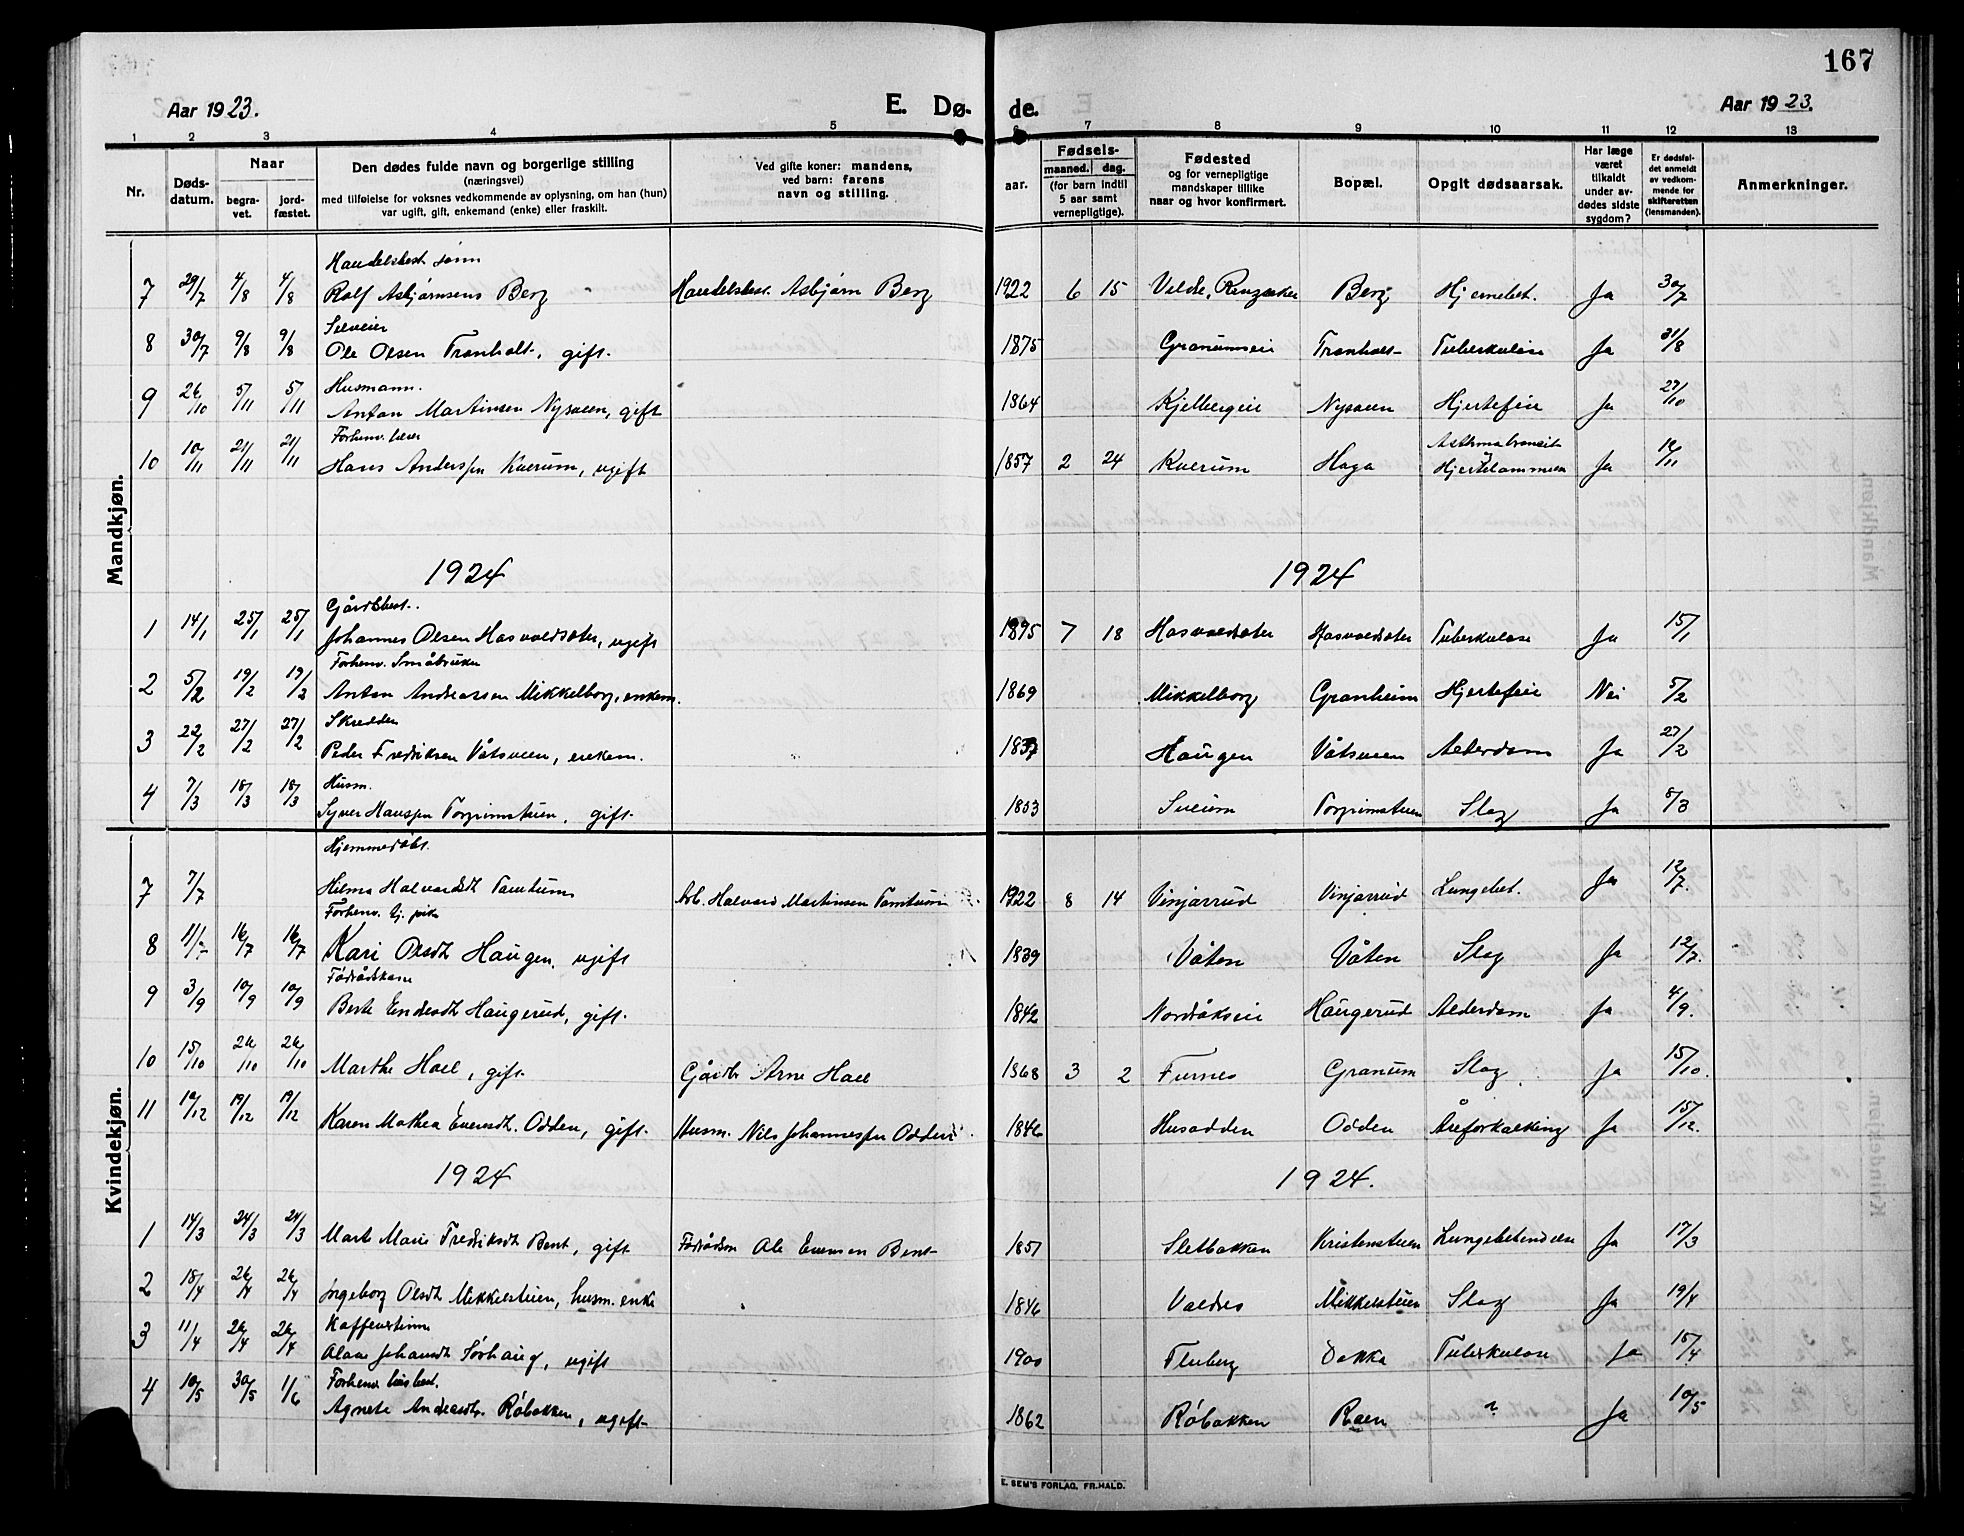 167
Aar 1923. E. Dø- de. Aar 1923.
1 2 3 4 5 6 7 8 9 10 11 12 13
Nr. Døds-datum. Naar begra-vet. jord-fæstet. Den dødes fulde navn og borgerlige stilling (næringsvei) med tilføielse for voksnes vedkommende av oplysning, om han (hun) var ugift, gift, enkemand (enke) eller fraskilt. Ved gifte koner: mandens, ved barn: farens navn og stilling. aar. Fødsels- maaned. dag. (for barn indtil 5 aar samt vernepligtige). Fødested og for vernepligtige mandskaper tillike naar og hvor konfirmert. Bopæl. Opgit dødsaarsak. Har læge været tilkaldt under av-dødes sidste sygdom? Er dødsfal-det anmeldt av vedkom-mende for skifteretten (lensmanden). Anmerkninger.
Mandkjøn.
Handelsbest. sønn
7 29/7 4/8 4/8 Rolf Asbjørnsens Berg Handelsbest. Asbjørn Berg 1922 6 15 Velde, Ringsaker Berg Hjernebet. Ja 30/7
Selveier
8 30/7 9/8 9/8 Ole Olsen Tranholt, gift. 1875 Granumseie Tranholt Tuberkulose Ja 31/8
Husmann.
9 26/10 5/11 5/11 Anton Martinsen Nysveen, gift 1864 Kjelbergeie Nysveen Hjertefeil Ja 27/10
Forhenv. lærer
10 10/11 21/11 21/11 Hans Anderssen Kverum, ugift 1857 2 24 Kverum Haga Hjertelammelse Ja 12/11
1924 1924
Gårdbest.
1 14/1 25/1 25/1 Johannes Olsen Hasvoldseter, ugift 1895 7 18 Hasvoldseter Hasvoldseter Tuberkulose Ja 15/1
Forhenv. Småbruker
2 5/2 19/2 19/2 Anton Andreassen Mikkelborg, enkem. 1869 Mikkelborg Granheim Hjertefeil Nei 5/2
Skredder
3 22/2 27/2 27/2 Peder Fredriksen Våtsveen, enkem. 1837 Haugen Våtsveen Alderdom Ja 27/2
Husm.
4 7/3 18/3 18/3 Syver Hanssen Torgrimstuen, gift. 1853 Sveum Torgrimstuen Slag Ja 8/3
Kvindekjøn.
Hjemmedøbt.
7 7/7 Hilma Halvardsdt. Tamtum Arb. Halvard Martinsen Tamtum 1922 8 14 Vinjarrud Vinjarrud Lungebet. Ja 12/7.
Forhenv. tj. pike
8 11/7 16/7 16/7 Kari Olsdt. Haugen, ugift 1839 Våten Våten Slag Ja 12/7.
Føderådskone
9 3/9 10/9 10/9 Berte Endresdt. Haugerud, gift. 1842 Nordråkseie Haugerud Alderdom Ja 4/9.
10 15/10 26/10 26/10 Marthe Hoel, gift. Gårdbr. Arne Hoel 1868 3 2 Furnes Granum Slag Ja 15/10.
11 10/12 19/12 19/12 Karen Mathea Evensdt. Odden, gift. Husm. Nils Johannessen Odden 1846 Husodden Odden Åreforkalkning Ja 15/12.
1924 1924.
1 14/3 24/3 24/3 Marte Marie Fredriksdt. Bent, gift Føderådsm. Ole Evensen Bent 1851 Sletbakken Kristenstuen Lungebetendelse Ja 17/3
2 18/4 26/4 26/4 Ingeborg Olsdt. Mikkelstuen, husm. enke 1846 Valdres Mikkelstuen Slag Ja 19/4
Kaffevertinne
3 11/4 26/4 26/4 Johansdt. Sørhaug, ugift 1900 Fluberg Dokka Tuberkulose Ja 15/4
Forhenv.
4 10/5 30/5 1/6 Agnete Andersdt. Røbakken, ugift 1862 Røbakken Roen ? Ja 10/5
E. SEM'S FORLAG, FR.HALD.